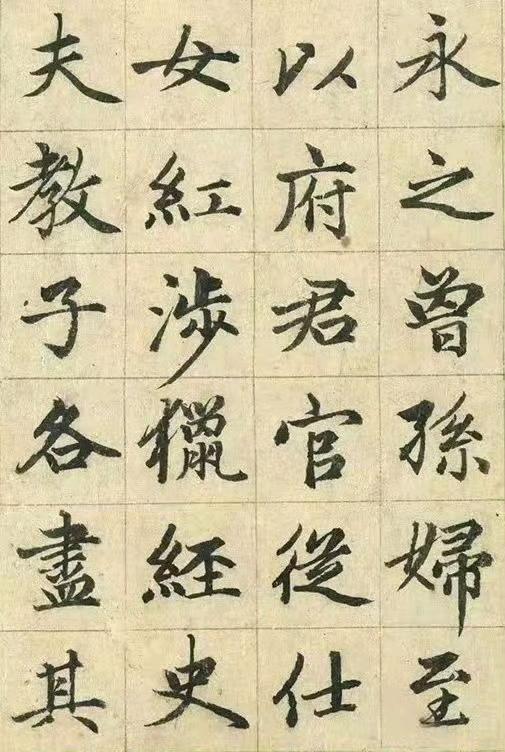 永之曾孫婦至
以府君官從仕
女紅涉獵經史
夫教子各盡其